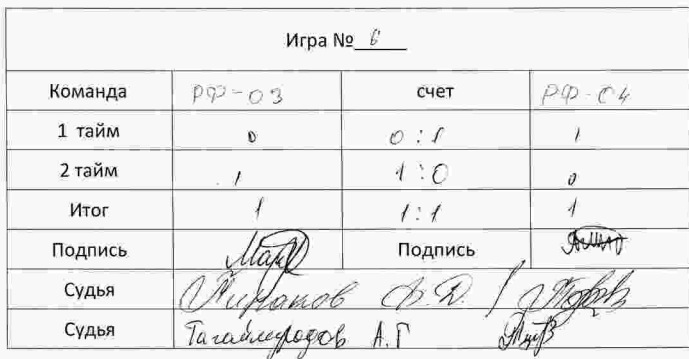 Игра № 6
Команда РФ-03 счет РФ-04
1 тайм 0 0:1 1
2 тайм 1 1:0 0
Итог 1 1:1 1
Подпись Подпись
Судья
Судья А.Г